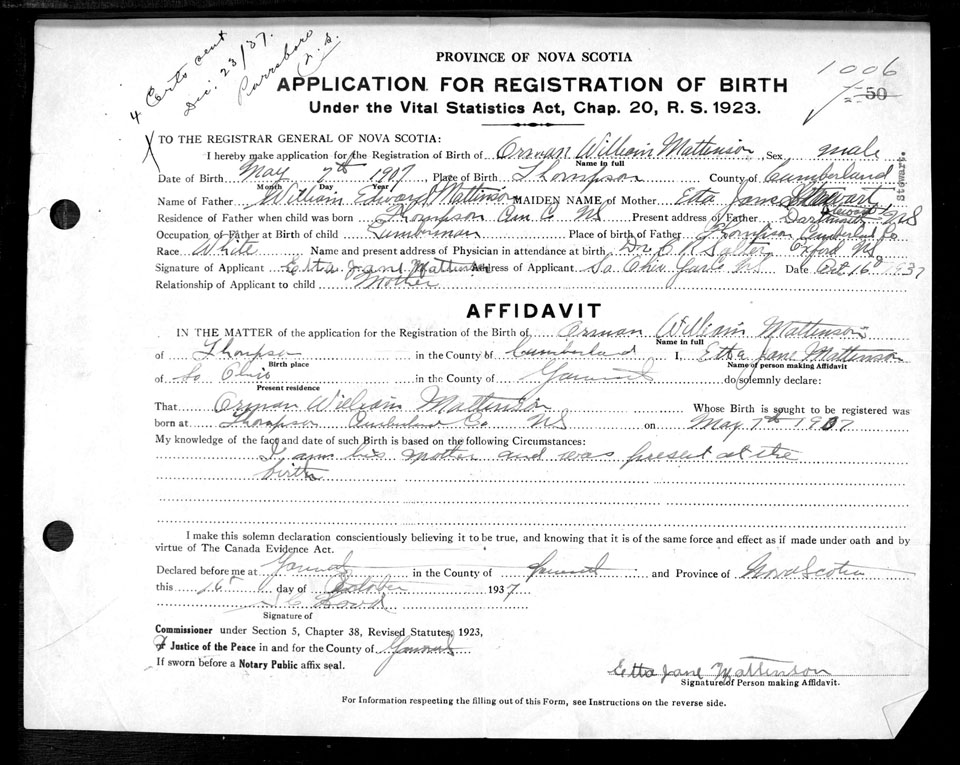 4 Certs sent
Dec. 23/37.
Parrsboro
N.S.
PROVINCE OF NOVA SCOTIA
1006
APPLICATION FOR REGISTRATION OF BIRTH
50
Under the Vital Statistics Act, Chap. 20, R. S. 1923.
X TO THE REGISTRAR GENERAL OF NOVA SCOTIA:
I hereby make application for the Registration of Birth of Orman William Mattinson Sex male
Name in full
Date of Birth May 7th 1907 Place of Birth Thompson County of Cumberland
Month Day Year
Stewart.
Name of Father William Edward Mattinson MAIDEN NAME of Mother Etta Jane Stewart
Residence of Father when child was born Thompson Cum Co NS Present address of Father Dartmouth NS
Occupation of Father at Birth of child Lumberman Place of birth of Father Thompson Cumberland Co
Race White Name and present address of Physician in attendance at birth Dr. Oxford NS
Signature of Applicant Etta Jane Mattinson Address of Applicant So. Ohio Yar Co NS Date Oct 16 1937
Relationship of Applicant to child Mother
AFFIDAVIT
IN THE MATTER of the application for the Registration of the Birth of Orman William Mattinson
Name in full
of Thompson in the County of Cumberland I, Etta Jane Mattinson
Birth place Name of person making Affidavit
of So Ohio in the County of Yarmouth do solemnly declare:
Present residence
That Orman William Mattinson Whose Birth is sought to be registered was
born at Thompson Cumberland Co NS on May 7th 1907
My knowledge of the face and date of such Birth is based on the following Circumstances:
I am his mother and was present at the
birth
I make this solemn declaration conscientiously believing it to be true, and knowing that it is of the same force and effect as if made under oath and by
virtue of The Canada Evidence Act.
Declared before me at Yarmouth in the County of Yarmouth and Province of Nova Scotia
this 16 day of October 1937
Signature of
Commissioner under Section 5, Chapter 38, Revised Statutes, 1923,
Justice of the Peace in and for the County of Yarmouth
If sworn before a Notary Public affix seal.
Etta Jane Mattinson
Signature of Person making Affidavit.
For Information respecting the filling out of this Form, see Instructions on the reverse side.